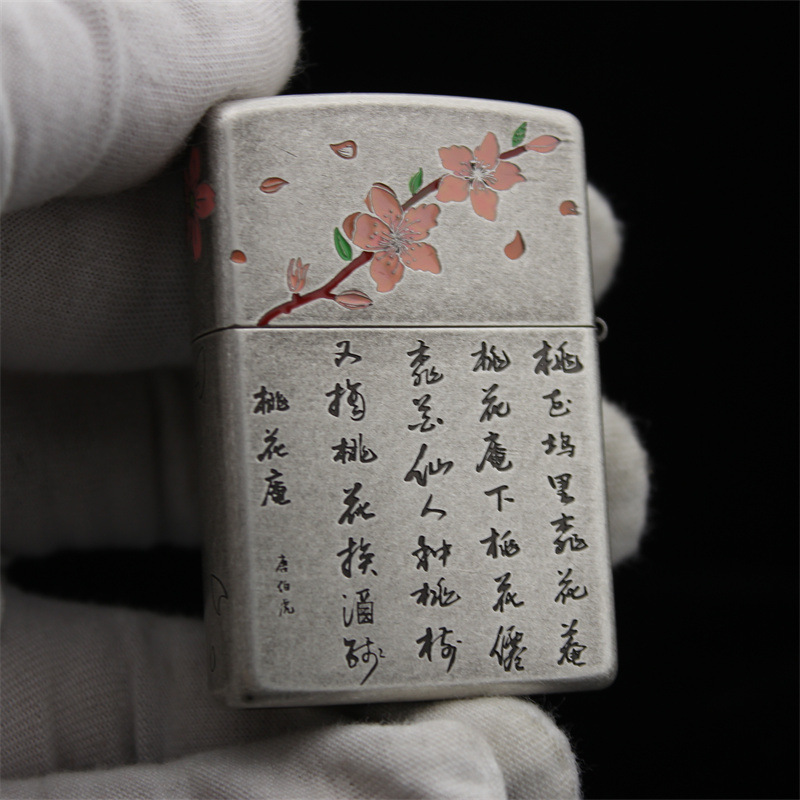 桃花坞里桃花庵
桃花庵下桃花僊
桃花仙人种桃树
又摘桃花换酒钱
桃花庵
唐伯虎